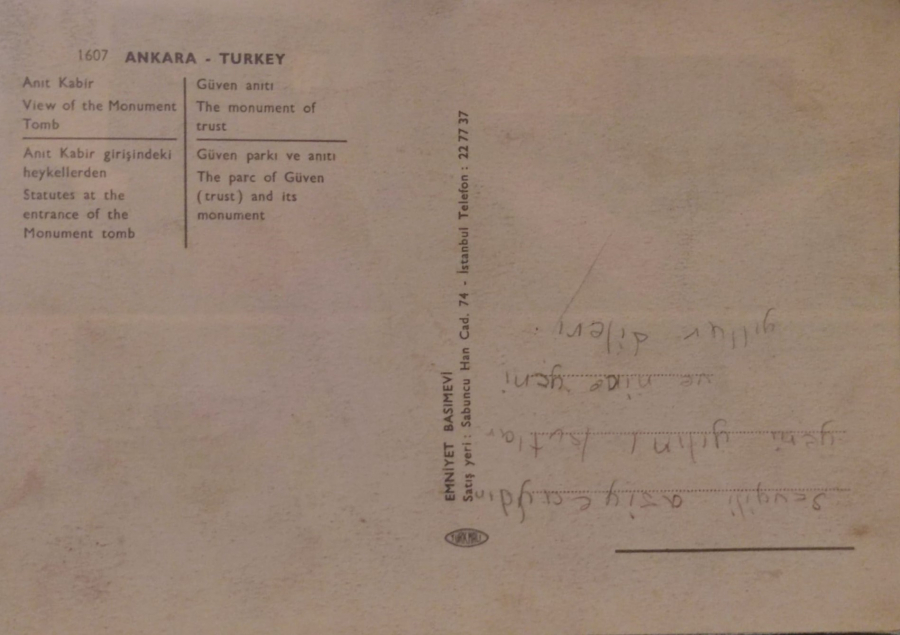 1607 ANKARA - TURKEY
Anıt Kabir
View of the Monument
Tomb
Güven anıtı
The monument of
trust
Anıt Kabir girişindeki
heykellerden
Statutes at the
entrance of the
Monument tomb
Güven parkı ve anıtı
The parc of Güven
(trust) and its
monument
EMNİYET BASIMEVİ
Satış yeri : Sabuncu Han Cad. 74 - İstanbul Telefon : 22 77 37
TÜRK MALI
Sevgili
yeni yılını kutlar
ve nice yeni
yıllar